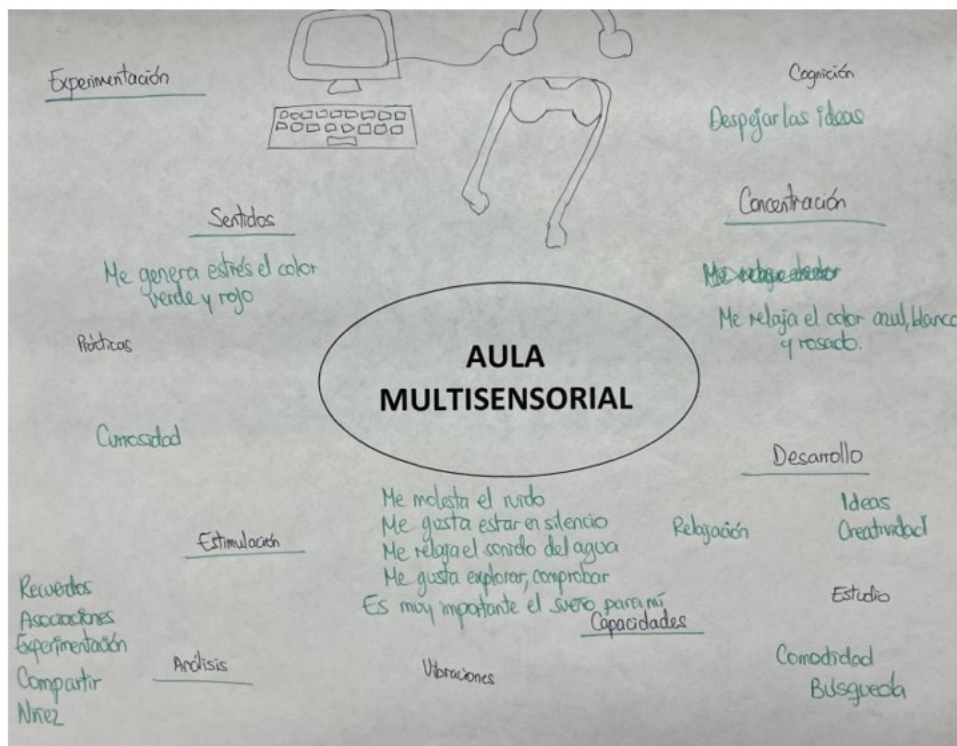 Experimentación
Cognición
Despejar las ideas
Sentidos
Concentración
Me genera estrés el color
verde y rojo
Me relaja el color azul, blanco
y rosado.
Prácticas
AULA
MULTISENSORIAL
Curiosidad
Desarrollo
Me molesta el ruido
Me gusta estar en silencio
Me relaja el sonido del agua
Me gusta explorar, comprobar
Es muy importante el sueño para mí
Ideas
Relajación
Creatividad
Estimulación
Estudio
Capacidades
Recuerdos
Asociaciones
Experimentación
Compartir
Niñez
Análisis
Vibraciones
Comodidad
Búsqueda